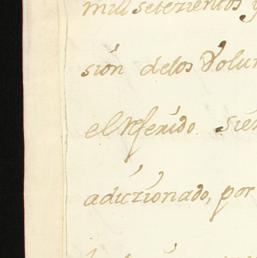 mill setezientos y
sión delos Volun
el Referido sien
adiczionado, por